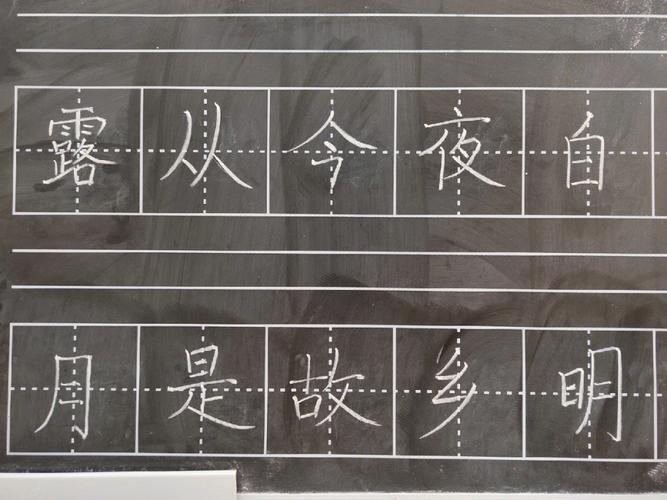 露从今夜自
月是故乡明